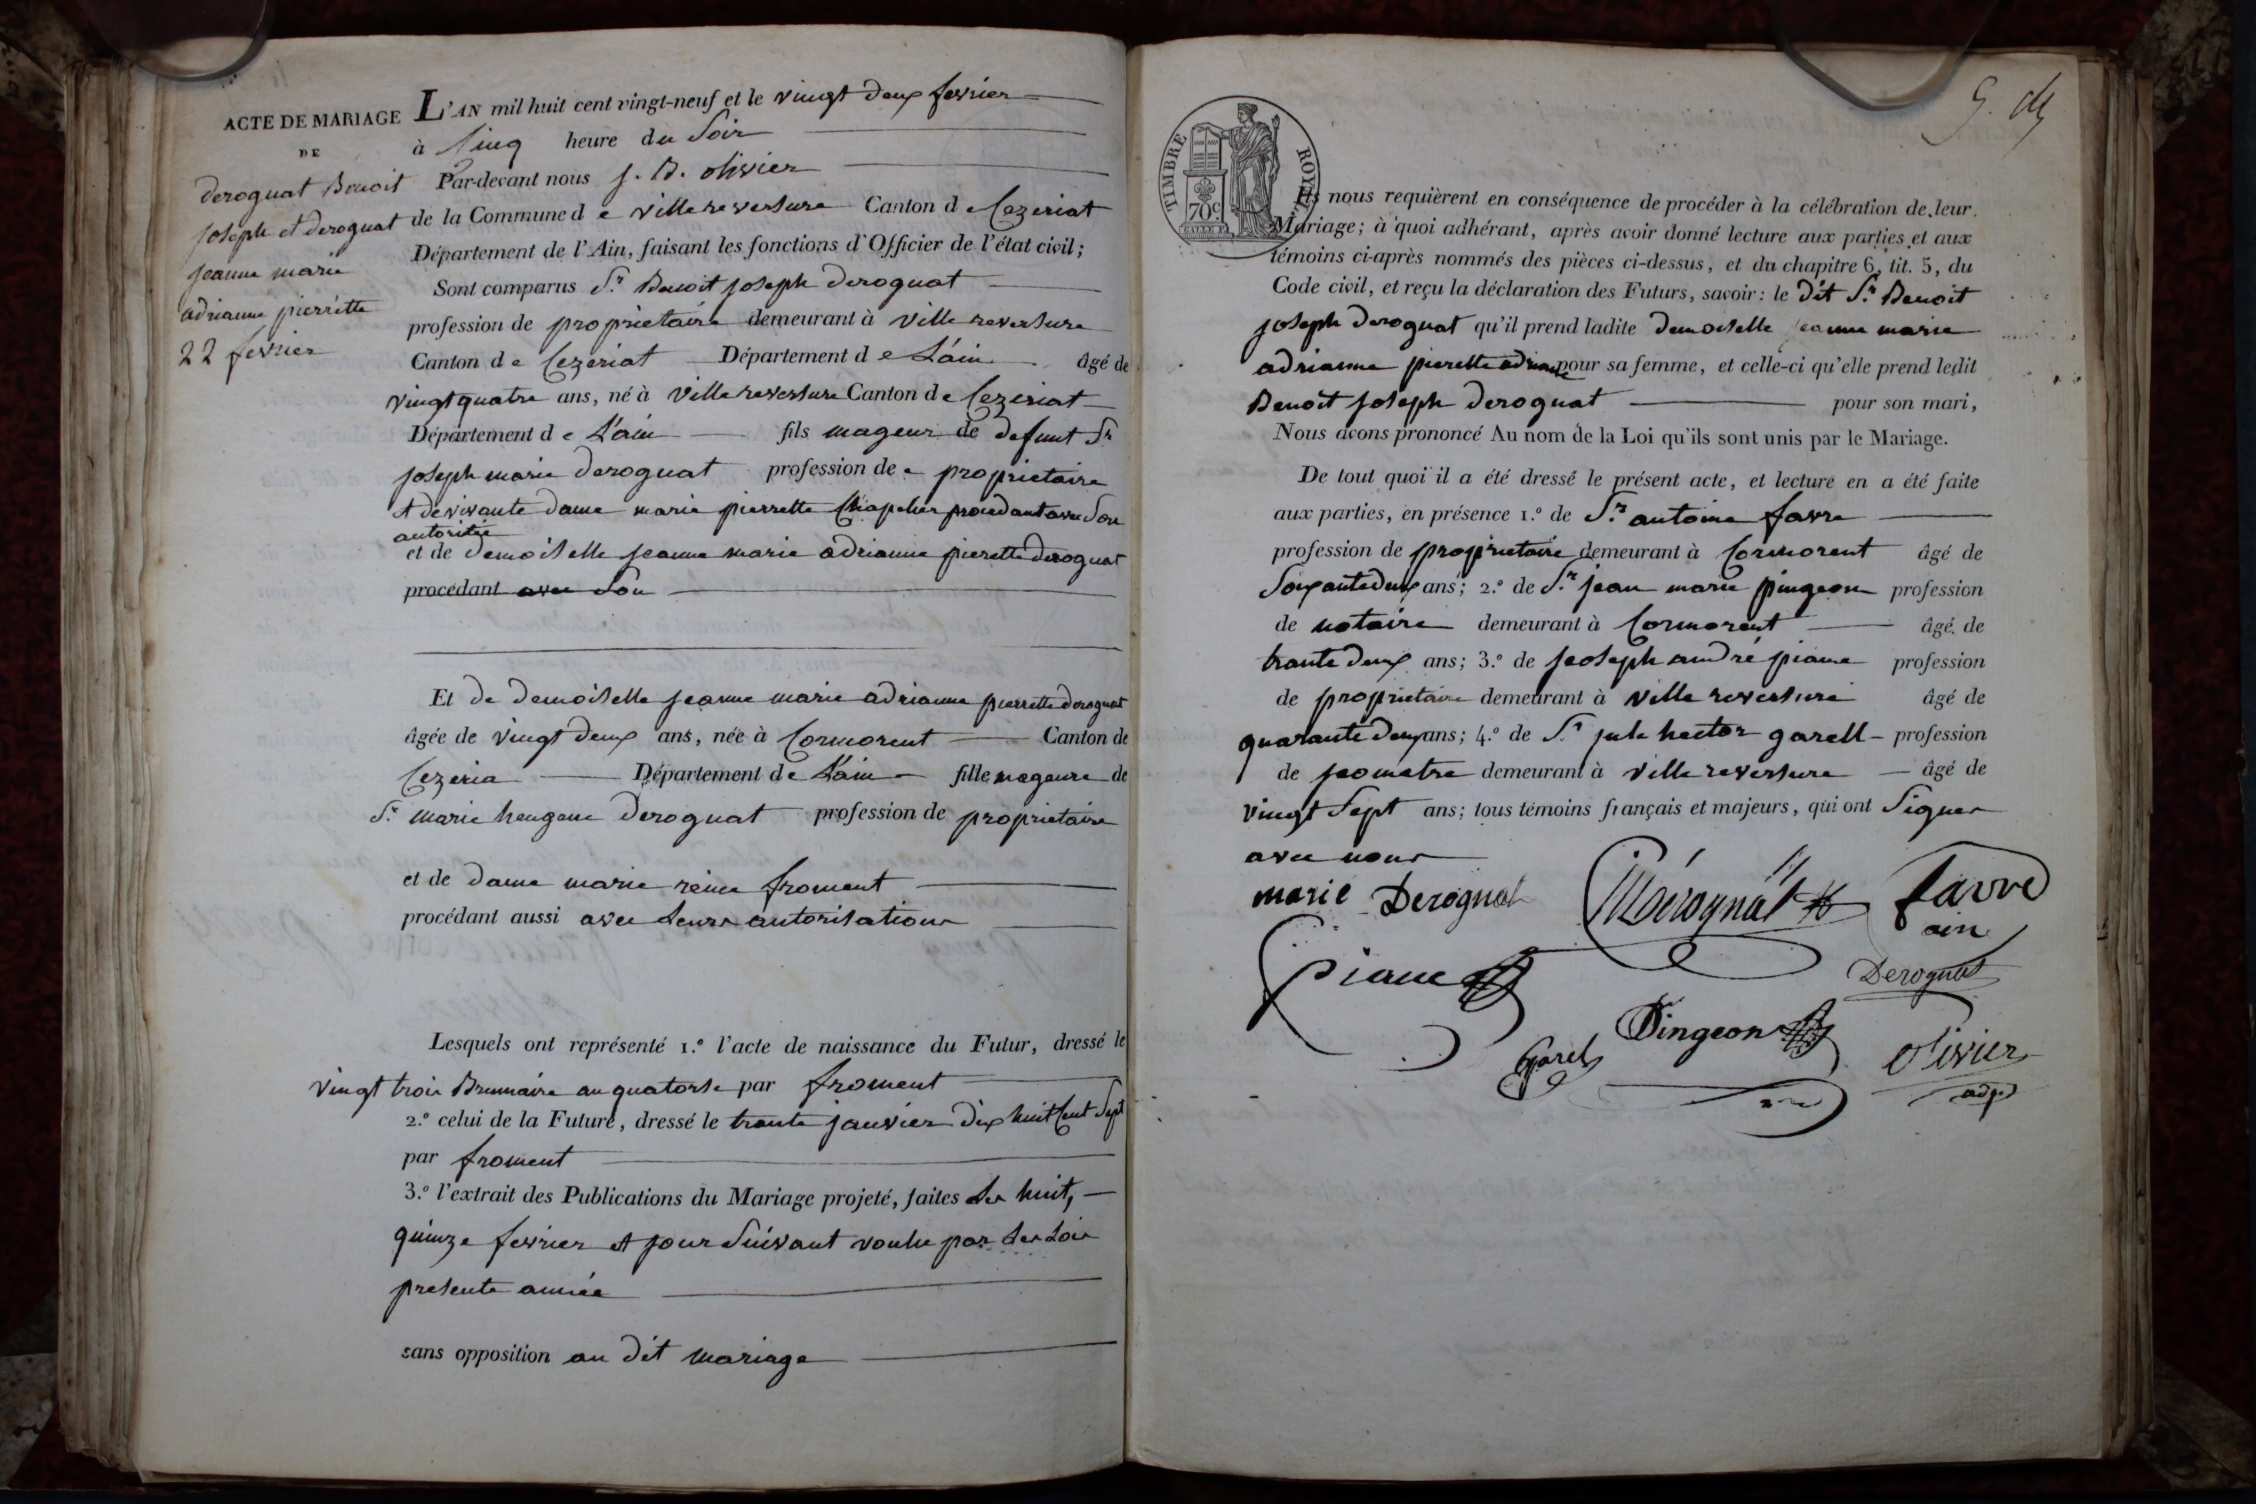 ACTE DE MARIAGE
DE
deroguat Benoit
joseph et deroguat
jeanne marie
adrianne pierrette
22 fevrier
L'AN mil huit cent vingt-neuf et le vingt deux fevrier
à Cinq heure du soir
Par-devant nous J. B. olivier
de la Commune de villereversure Canton de Cezeriat
Département de l'Ain, faisant les fonctions d'Officier de l'état civil;
Sont comparus Sr. Benoit joseph deroguat
profession de proprietaire demeurant à villereversure
Canton de Cezeriat Département de L'ain âgé de
vingt quatre ans, né à villereversure Canton de Cezeriat
Département de L'ain fils mageur de defunt Sr
joseph marie deroguat profession de proprietaire
et de vivante dame marie pierrette Chapelier procedant avec Son
autoritée
et de demoiselle jeanne marie adrianne pierrette deroguat
procédant avec Son
Et de demoiselle jeanne marie adrianne pierrette deroguat
âgée de vingt deux ans, née à Cormorent Canton de
Cezeria Département de L'ain fille mageure de
Sr. marie heugene deroguat profession de proprietaire
et de dame marie reine froment
procédant aussi avec Leurs autorisations
Lesquels ont représenté 1.º l'acte de naissance du Futur, dressé le
vingt trois Brumaire an quatorse par froment
2.º celui de la Future, dressé le trante janvier dix huit Cent Sept
par froment
3.º l'extrait des Publications du Mariage projeté, faites Les huit,
quinze fevrier et jour Suivant voulu par Les Lois
presente année
sans opposition au dit mariage
TIMBRE ROYAL
70c
Ils nous requièrent en conséquence de procéder à la célébration de leur
Mariage; à quoi adhérant, après avoir donné lecture aux parties et aux
témoins ci-après nommés des pièces ci-dessus, et du chapitre 6, tit. 5, du
Code civil, et reçu la déclaration des Futurs, savoir: le dit Sr. Benoit
joseph deroguat qu'il prend ladite demoiselle jeanne marie
adrianne pierette pour sa femme, et celle-ci qu'elle prend ledit
Benoit joseph deroguat pour son mari,
Nous avons prononcé Au nom de la Loi qu'ils sont unis par le Mariage.
De tout quoi il a été dressé le présent acte, et lecture en a été faite
aux parties, en présence 1.º de Sr. antoine favre
profession de proprietaire demeurant à Cormorent âgé de
Soixante deux ans; 2.º de Sr. jean marie pingeon profession
de notaire demeurant à Cormorent âgé de
trante deux ans; 3.º de jeoseph andré piane profession
de proprietaire demeurant à villereversure âgé de
quarante deux ans; 4.º de Sr jule hector garell profession
de jeometre demeurant à villereversure âgé de
vingt Sept ans; tous témoins français et majeurs, qui ont Signer
avec nous
marie Derognat Derognat favre
ain
piane Derognat
Pingeon
Garel Olivier
adj.